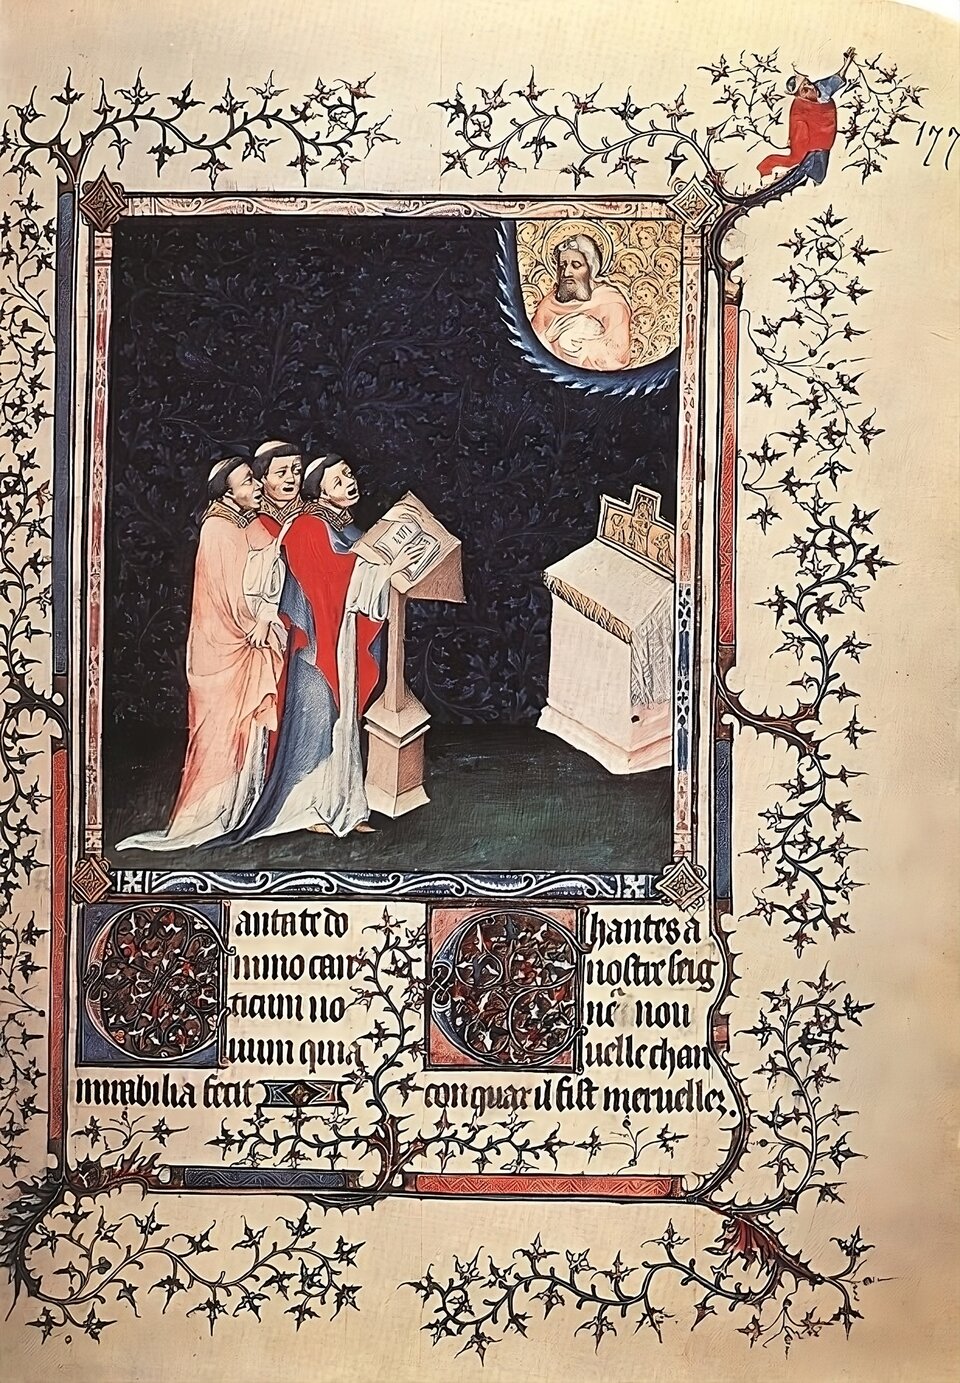 177
Cantate do
mino can
ticum no
uum quia
mirabilia fecit
Chantes a
nostre seig
non
uelle chan
con quar il fist meruellez.